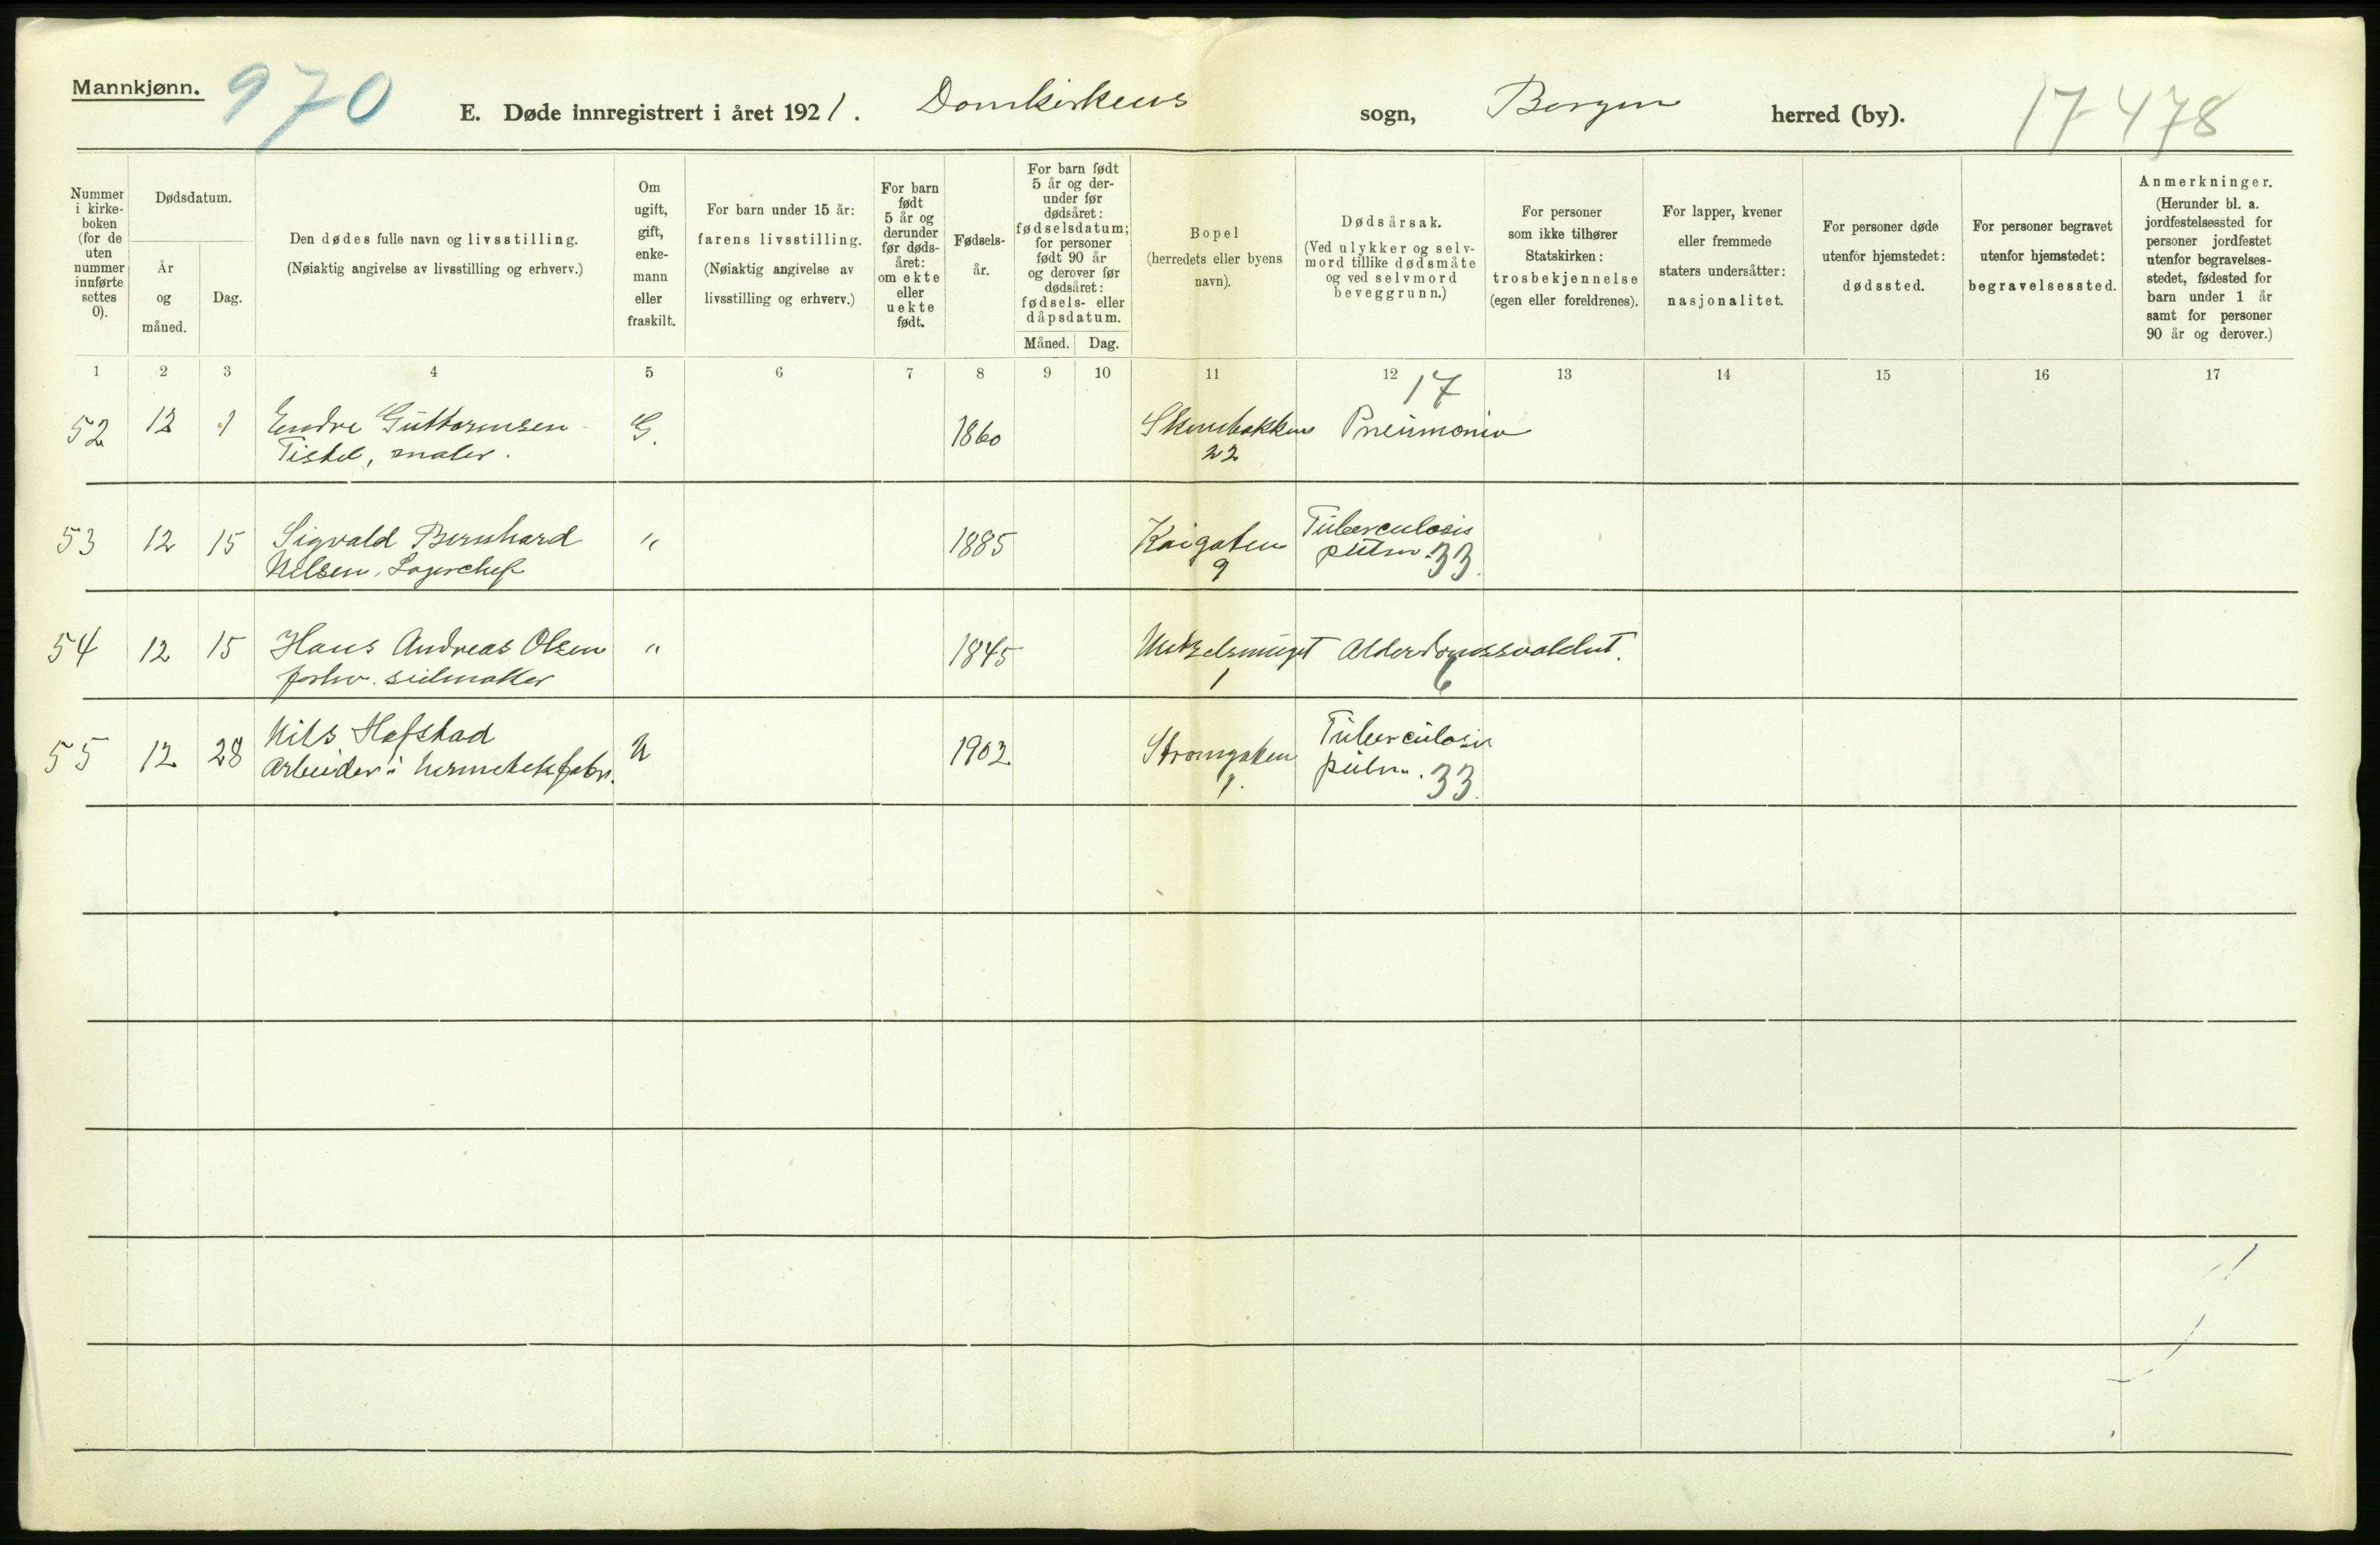 Mannkjønn.
970
E. Døde innregistrert i året 1921. Domkirkens sogn, Bergen herred (by).
17478
Nummer i kirke- boken (for de uten nummer innførte settes 0).
Dødsdatum.
År og måned.
Dag.
Den dødes fulle navn og livsstilling.
(Nøiaktig angivelse av livsstilling og erhverv.)
Om ugift, gift, enke- mann eller fraskilt.
For barn under 15 år:
farens livsstilling.
(Nøiaktig angivelse av
livsstilling og erhverv.)
For barn født 5 år og derunder før døds- året: om ekte eller uekte født.
Fødsels- år.
For barn født 5 år og der- under før dødsåret: fødselsdatum; for personer født 90 år og derover før dødsåret: fødsels- eller dåpsdatum.
Måned. Dag.
Bopel
(herredets eller byens
navn).
Dødsårsak.
(Ved ulykker og selv- mord tillike dødsmåte og ved selvmord beveggrunn.)
For personer som ikke tilhører Statskirken: trosbekjennelse (egen eller foreldrenes).
For lapper, kvener eller fremmede staters undersåtter: nasjonalitet.
For personer døde utenfor hjemstedet: dødssted.
For personer begravet utenfor hjemstedet: begravelsessted.
Anmerkninger.
(Herunder bl. a. jordfestelsessted for personer jordfestet utenfor begravelses- stedet, fødested for barn under 1 år samt for personer 90 år og derover.)
1 2 3 4 5 6 7 8 9 10 11 12 13 14 15 16 17
17
52 12 1 Endre Guttormsen G. 1860 Pneumonia
Tistel, maler. 22
53 12 15 Sigvald Bernhard " 1885 Kaigaten Tuberculosis
Nilsen, Lagerchef 9 pulm. 33.
54 12 15 Hans Andreas Olsen " 1845 Alderdomssvakhet.
forhv. seilmaker 1 6
55 12 28 Nils Hafstad U 1902 Strømgaten Tuberculosis
Arbeider i hermetikkfabr. 1. pulm. 33.